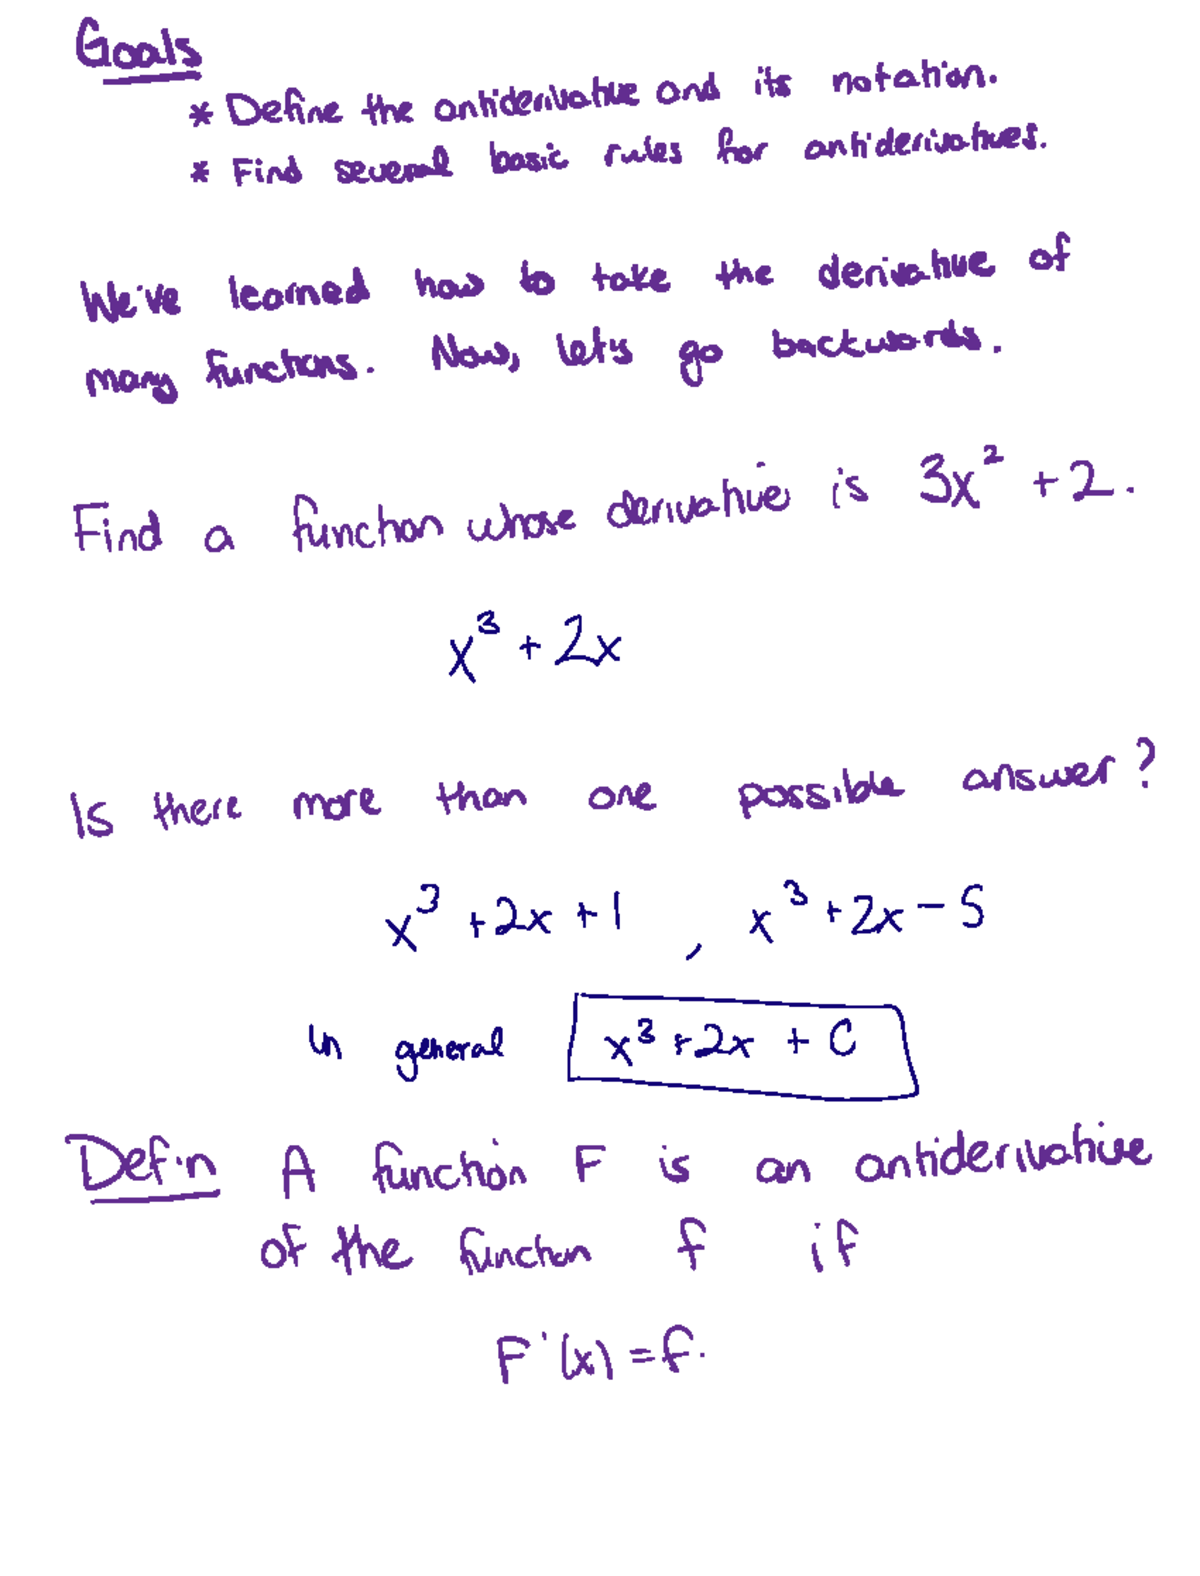 Goals
* Define the antiderivative and its notation.
* Find several basic rules for antiderivatives.
We've learned how to take the derivative of
many functions. Now, let's go backwards.
Find a function whose derivative is 3x² + 2.
x³ + 2x
Is there more than one possible answer?
x³ + 2x + 1 , x³ + 2x - 5
in general x³ + 2x + C
Def'n A function F is an antiderivative
of the function f if
F'(x) = f.